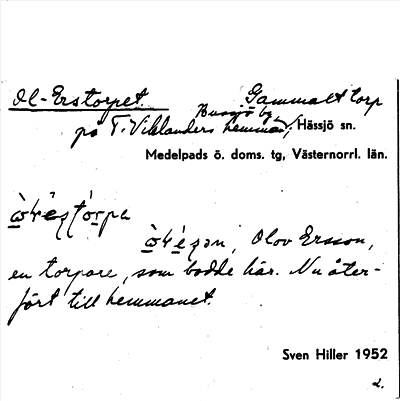 Ol-Erstorpet. Gammalt torp
Hussjö by,
på T. Viklanders hemman, Hässjö sn.
Medelpads ö. doms. tg, Västernorrl. län.
Olov Ersson,
en torpare, som bodde här. Nu åter-
fört till hemmanet.
Sven Hiller 1952